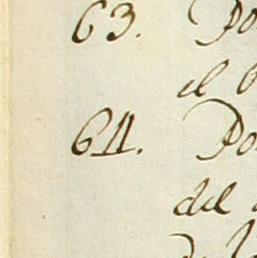 63. Po
el
64. Po
del